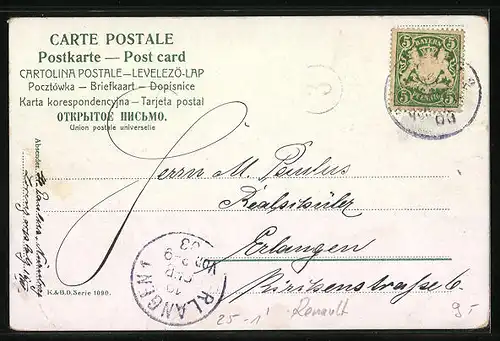 CARTE POSTALE
Postkarte — Post card
CARTOLINA POSTALE—LEVELEZÖ-LAP
Pocztówka — Briefkaart — Dopisnice
Karta korespondencyjna — Tarjeta postal
ОТКРЫТОЕ ПИСЬМО.
Union postale universelle
BAYERN
5 5
PFENNIG
3
Herrn M. Paulus
Realschüler
Erlangen
Absender:
ERLANGEN
10
VOR 8-9
03
K. & B. D. Serie 1090.
25-
Renault
9-